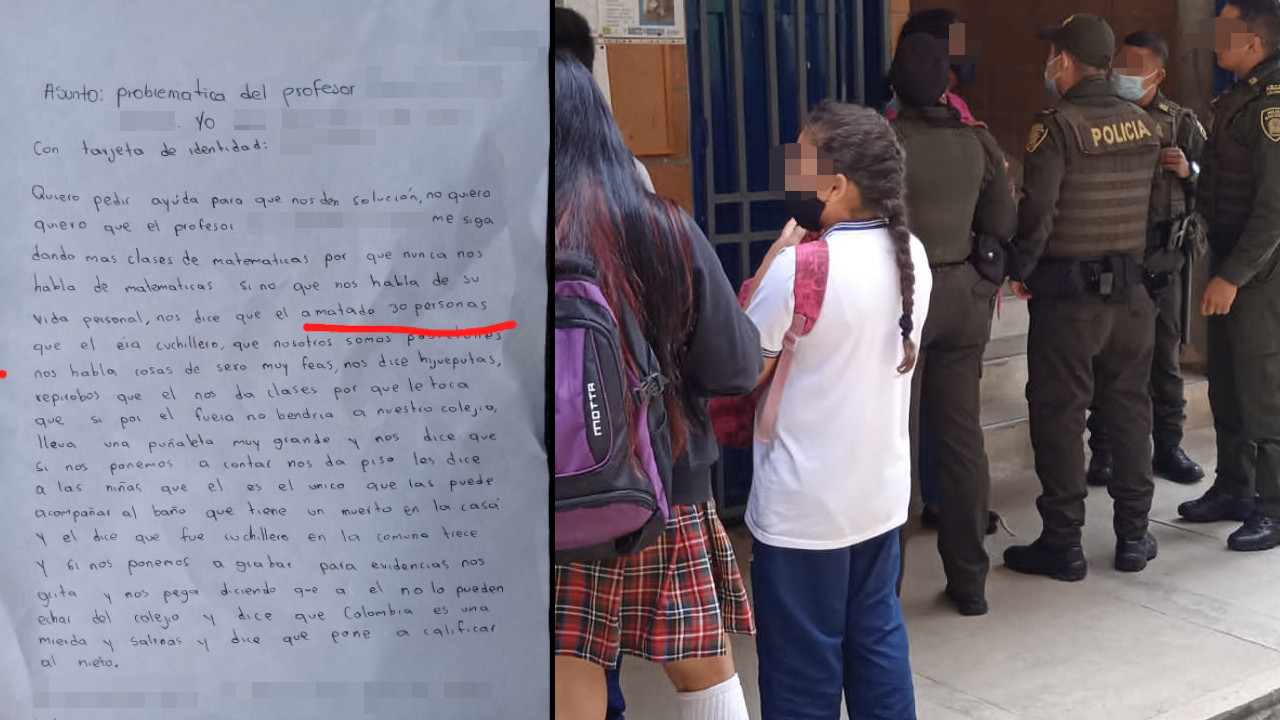 Asunto: problematica del profesor
Yo
Con tarjeta de identidad:
Quiero pedir ayuda para que nos den solución, no quiero
quiero que el profesor me siga
dando mas clases de matematicas por que nunca nos
habla de matematicas si no que nos habla de su
vida personal, nos dice que el a matado 30 personas
que el éra cuchillero, que nosotros somos
nos habla cosas de sexo muy feas, nos dice hijueputas,
repirobos que el nos da clases por que le toca
que si por el fuera no bendria a nuestro colejio,
lleva una puñaleta muy grande y nos dice que
si nos ponemos a contar nos da piso les dice
a las niñas que el es el unico que las puede
acompañar al baño que tiene un muerto en la casa
y el dice que fue cuchillero en la comuna trece
y si nos ponemos a grabar para evidencias nos
grita y nos pega diciendo que a el no lo pueden
echar del colejio y dice que Colombia es una
mierda y salinas y dice que pone a calificar
al nieto.
MOTTA
POLICIA